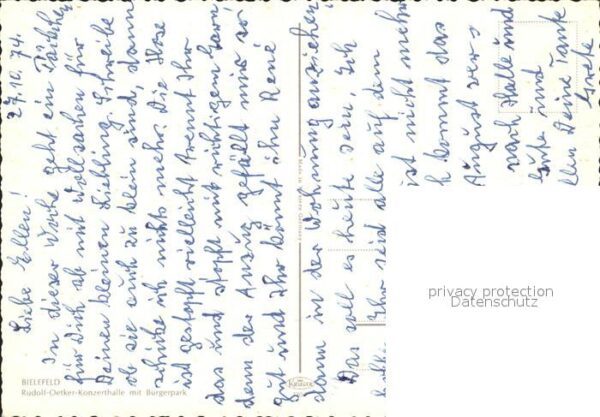 27.10.74.
Liebe Ellen!
In dieser Woche geht ein Päckchen
für Dich ab mit Wollsachen für
Deinen kleinen Liebling. Schreibe
ob sie auch zu klein sind, dann
schicke ich nichts mehr. Die Hose
ist gestopft vielleicht trennt Ihr
das und stopft mit richtigen Garn
denn der Anzug gefällt mir so
gut und Ihr könnt ihn René
dann in der Wohnung anziehen
Das soll es heute sein, Ich
Ihr seid alle auf dem
ist nicht mehr
h kommt das
August
nach Halle und
Grüße und
llen Deine Tante
BIELEFELD
Rudolf-Oetker-Konzerthalle mit Bürgerpark
Krüger
privacy protection
Datenschutz